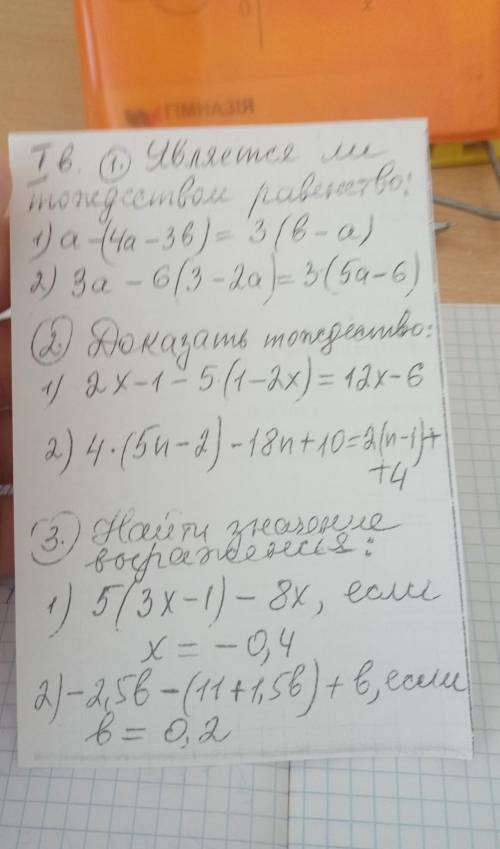 ГІМНАЗІЯ
I в. 1. Является ли
тождеством равенство:
1) а - (4а - 3в) = 3(в - а)
2) 3а - 6(3 - 2а) = 3·(5а - 6)
2. Доказать тождество:
1) 2x - 1 - 5·(1 - 2x) = 12x - 6
2) 4·(5n - 2) - 18n + 10 = 2(n - 1) +
+ 4
3. Найти значение
выражения:
1) 5(3x - 1) - 8x, если
x = -0,4
2) -2,5в - (11 + 1,5в) + в, если
в = 0,2